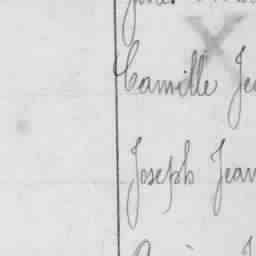 Camille Je
Joseph Jean